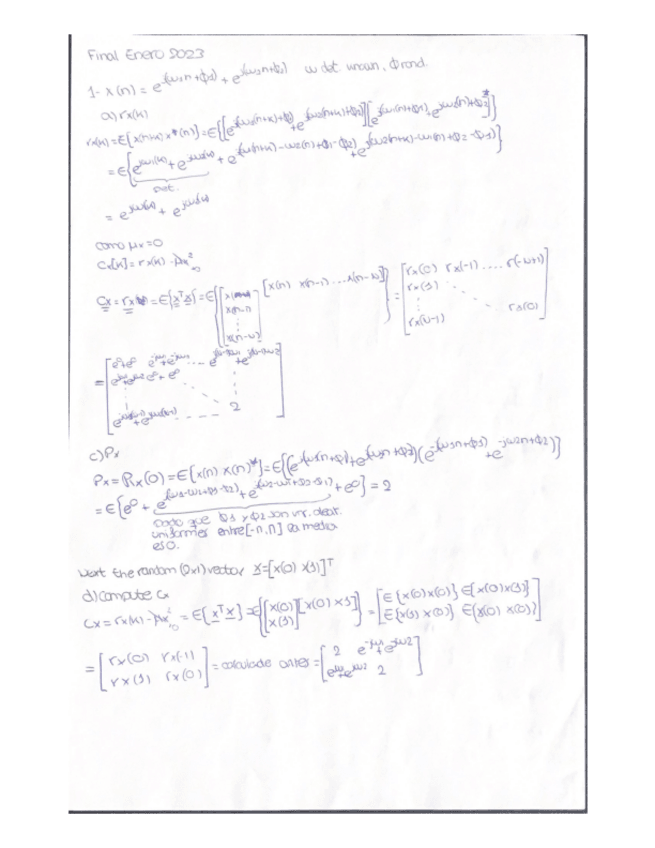 Final Enero 2023
1- x(n) = e^{j(ω1n+ϕ1)} + e^{j(ω2n+ϕ2)} ω det unown, ϕ rand.
a) rx(k)
rx(k) = E{x(n+k) x*(n)} = E{[e^{j(ω1(n+k)+ϕ1)} + e^{j(ω2(n+k)+ϕ2)}][e^{j(ω1(n)+ϕ1)} + e^{jω2(n)+ϕ2}]*}
= E{e^{jω1(k)} + e^{jω2(k)} + e^{j(ω1(n+k)-ω2(n)+ϕ1-ϕ2)} + e^{j(ω2(n+k)-ω1(n)+ϕ2-ϕ1)}}
det.
= e^{jω1(k)} + e^{jω2(k)}
como μx=0
Cx[k] = rx(k) - μx²
Cx = rx = E{x^T x} = E{[x(n) x(n-1) ... x(n-N)]} = [rx(0) rx(-1) .... r(-N+1)
rx(1)
rx(N-1) rx(0)]
= [e⁰+e⁰ e^{-jω1}+e^{-jω2} ...
e^{jω1}+e^{jω2} e⁰+e⁰
e^{jω1(N-1)}+e^{jω2(N-1)} 2]
c) Px
Px = Rx(0) = E{x(n) x(n)*} = E{(e^{j(ω1n+ϕ1)} + e^{j(ω2n+ϕ2)})(e^{-j(ω1n+ϕ1)} + e^{-jω2n+ϕ2})}
= E{e⁰ + e^{j(ω1-ω2+ϕ1-ϕ2)} + e^{j(ω2-ω1+ϕ2-ϕ1)} + e⁰} = 2
Dado que ϕ1 y ϕ2 son v.r. aleat.
uniformes entre [-π,π] la media
es 0.
the random (2x1) vector x=[x(0) x(1)]^T
d) compute Cx
Cx = rx(k) - μx² = E{x^T x} = E{[x(0) x(1)][x(0) x1]} = [E{x(0)x(0)} E{x(0)x(1)}
E{x(1)x(0)} E{x(0) x(0)}]
= [rx(0) rx(-1)
rx(1) rx(0)] = calculado antes = [2 e^{-jω1}+e^{-jω2}
e^{jω1}+e^{jω2} 2]